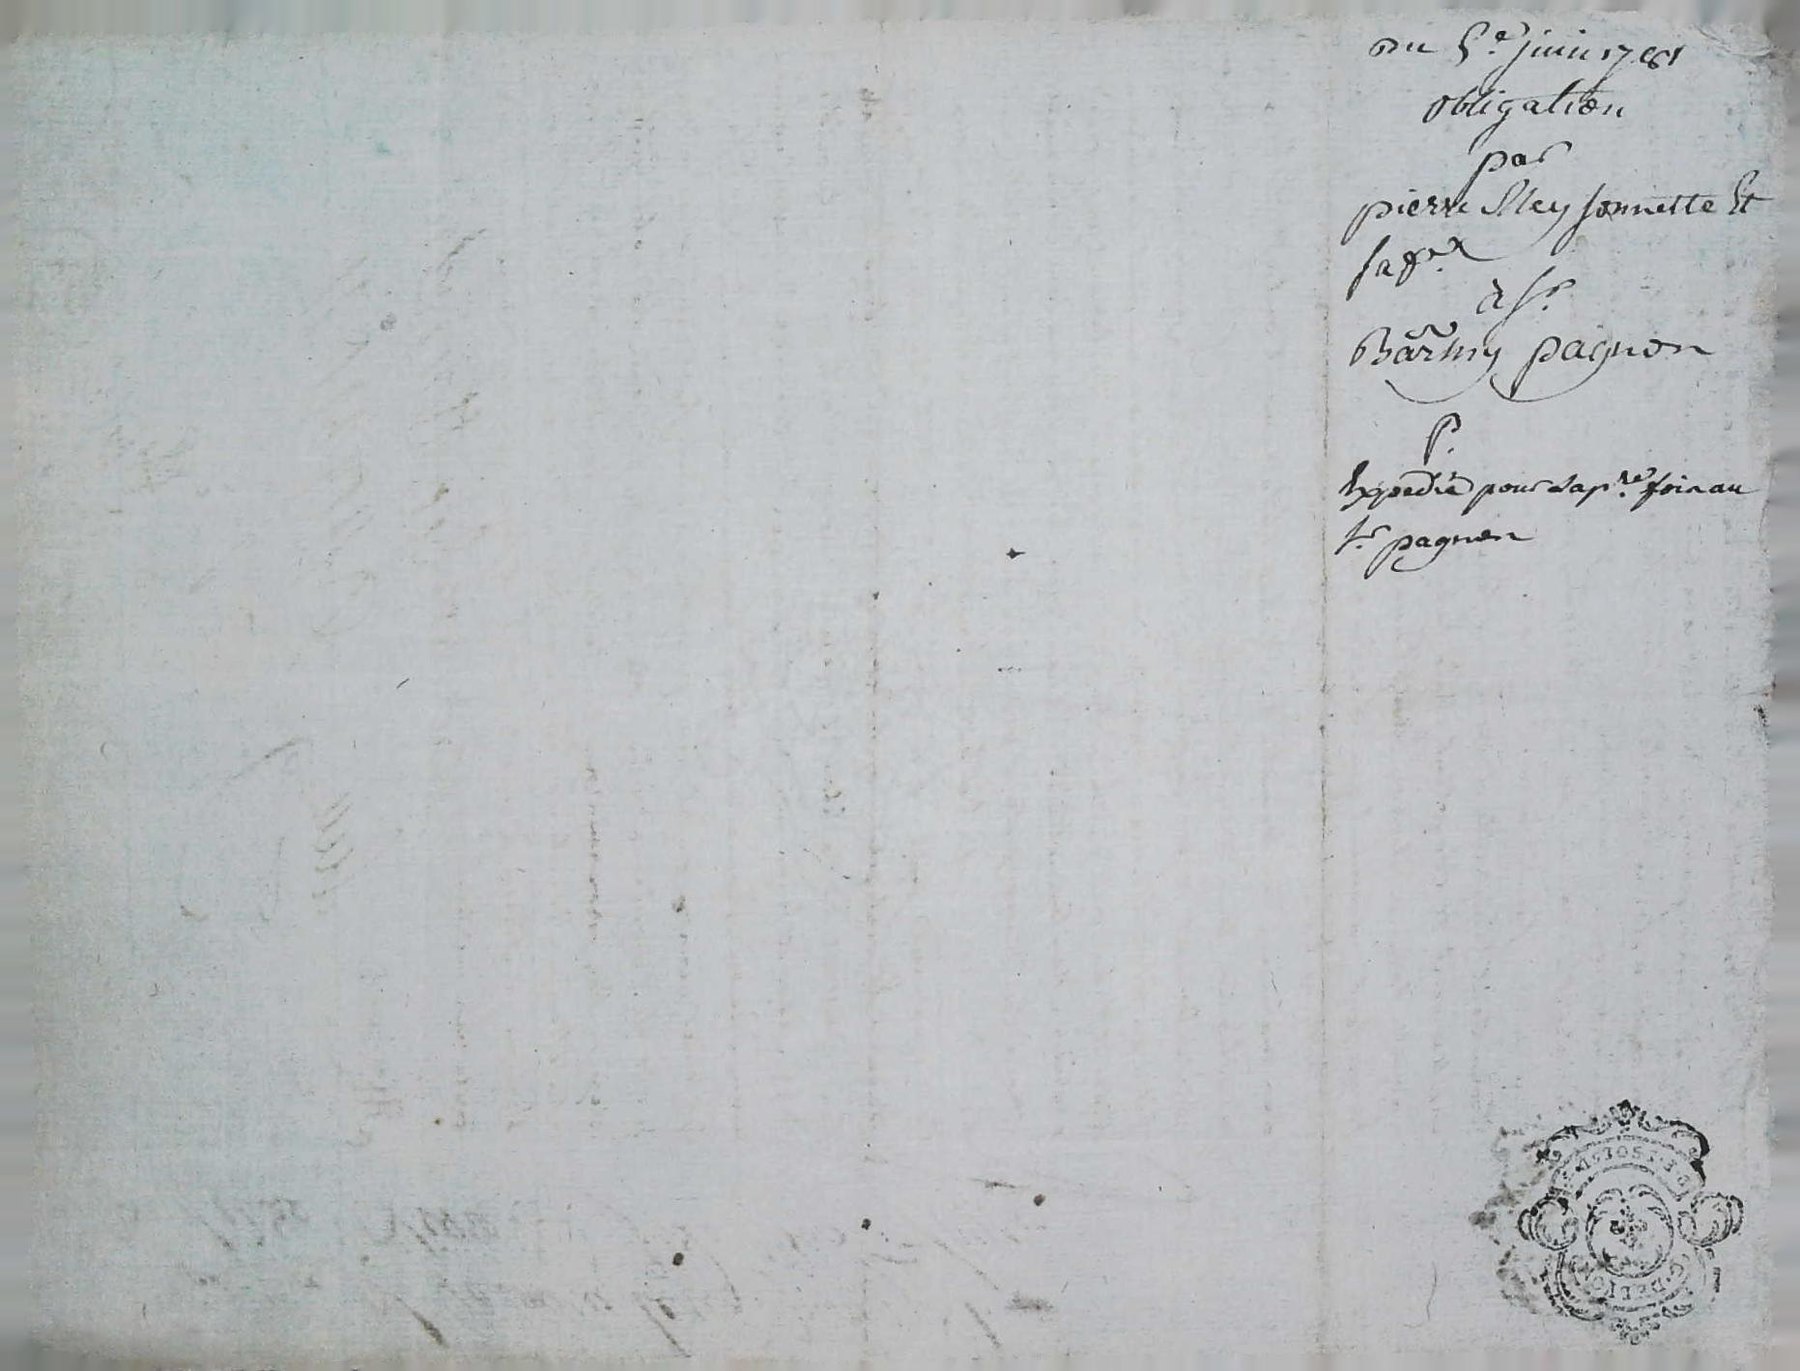 Du 5.e juin 1781
Obligation
par
pierre Meyssonnette Et
sa f.e
à Sr.
Barmy pagnon
P.
Expedié pour la p.re fois au
Sr. pagnon